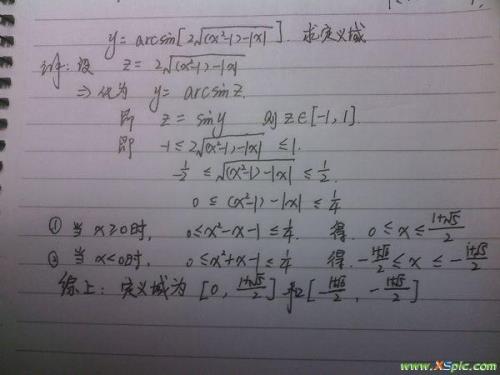 y = arcsin[2√(x²-1)-|x|]. 求定义域
解: 设 z = 2√(x²-1)-|x|
⇒ 化为 y = arcsin z.
即 z = sin y 则 z∈[-1, 1].
即 -1 ≤ 2√(x²-1)-|x| ≤ 1.
-1/2 ≤ √(x²-1)-|x| ≤ 1/2.
0 ≤ (x²-1)-|x| ≤ 1/4
① 当 x≥0时, 0≤x²-x-1≤1/4. 得. 0≤x≤(1+√5)/2
② 当 x<0时, 0≤x²+x-1≤1/4 得. ≤x≤
综上: 定义域为 [0, (1+√5)/2] 和
www.XSpic.com